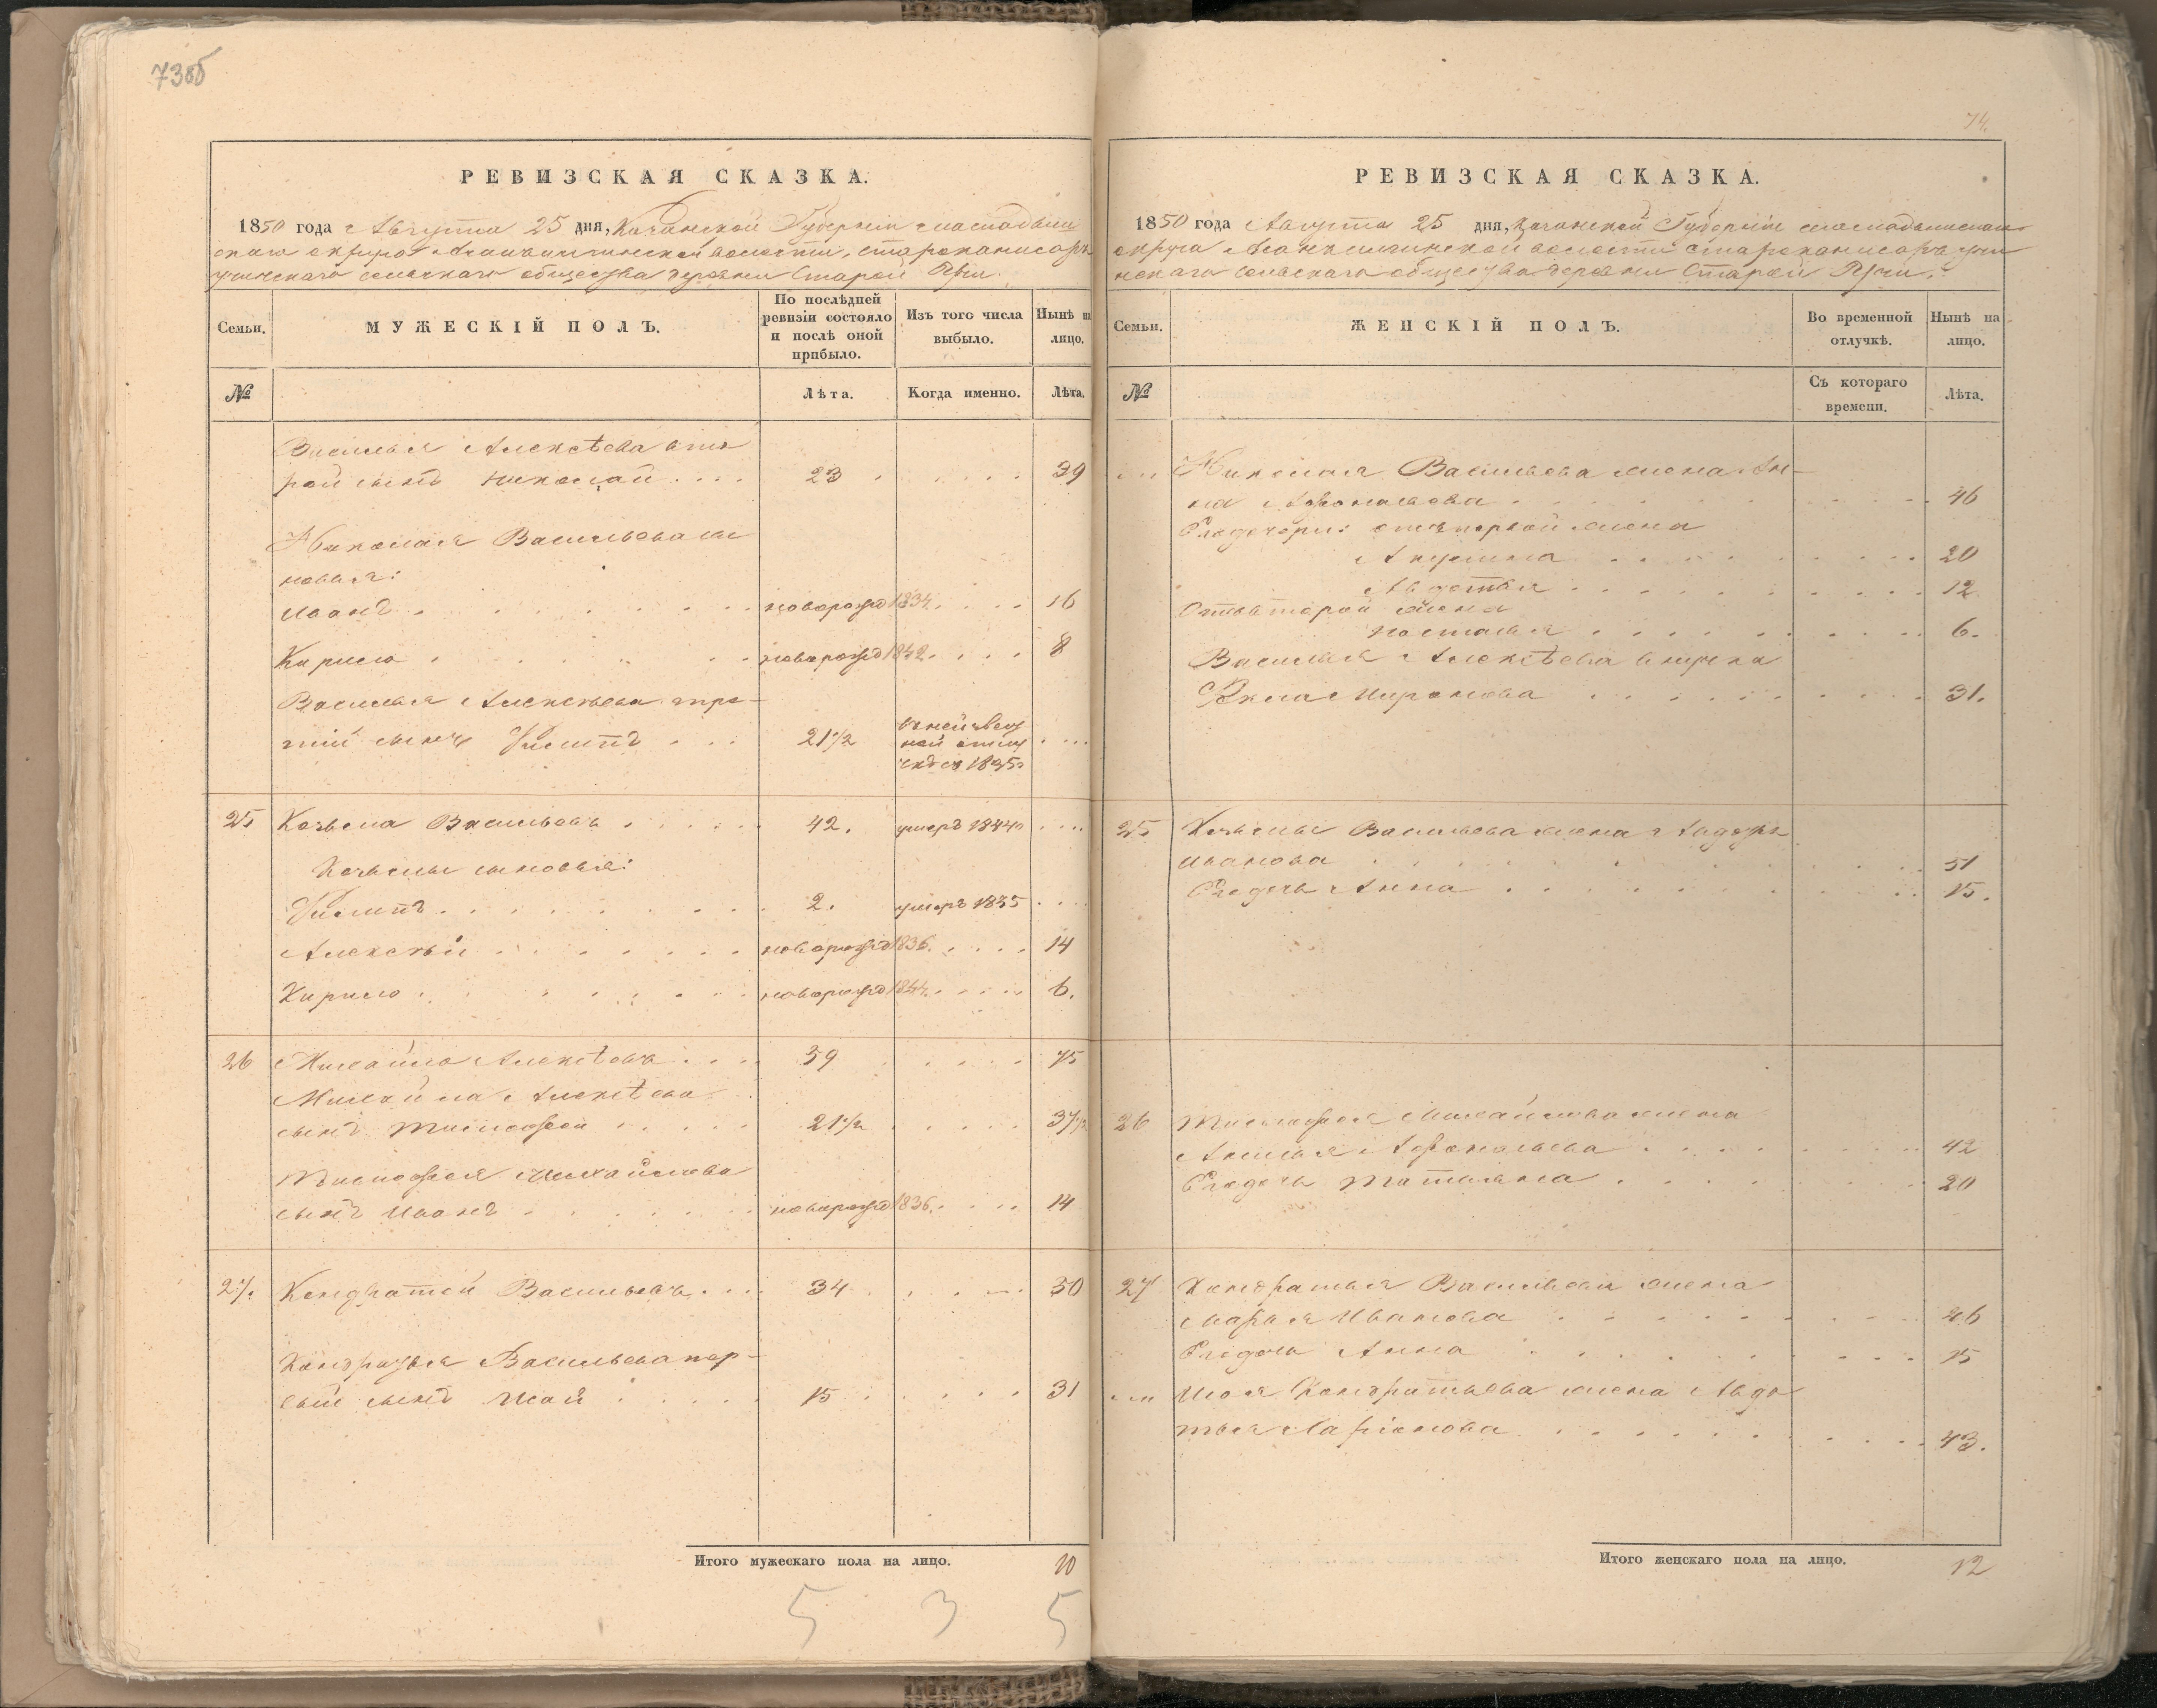 73об
РЕВИЗСКАЯ СКАЗКА.
1850 года Августа 25 дня, Казанской Губерніи Мамадыш
скаго округа волости, старо
сельскаго общества деревни Старой
Семьи.
МУЖЕСКІЙ ПОЛЪ.
По послѣдней ревизіи состояло и послѣ оной прибыло.
Изъ того числа выбыло.
Нынѣ на лицо.
№
Лѣта.
Когда именно.
Лѣта.
Василья Алексѣева вто
рой сынъ Николай . . . . 23 . . . . . 39
Николая Васильева сы
новья:
Иванъ . . . . новорожд 1834 . . . . 16
Кирило . . . . новорожд 1842 . . . . 8
Василья Алексѣева тре-
тій сынъ Филипъ . . . 21½ въ неизвѣст
ной отлу
чкѣ съ 1835 . . .
25 Козьма Васильевъ . . . . . 42. умеръ 1844 . . . .
Козьмы сыновья:
Филипъ . . . . 2. умеръ 1835 . . . .
Алексѣй . . . . новорожд 1836 . . . . 14
Кирило . . . . новорожд 1844 . . . . 6.
26 Михайло Алексѣевъ . . . . 59 . . . . . 75
Михайла Алексѣева
сынъ Тимофей . . . . . 21½ . . . . . 37½
Тимофея Михайлова
сынъ Иванъ . . . . новорожд 1836 . . . . 14
27. Кондратей Васильевъ . . . 34 . . . . . 50
Кондратья Васильева пер-
вый сынъ Исай . . . . . 15 . . . . . 31
Итого мужескаго пола на лицо. 10
5 3 5
74.
РЕВИЗСКАЯ СКАЗКА.
1850 года Августа 25 дня, Казанской Губерніи Мамадышскаго
округа волости старо
нскаго сельскаго общества деревни Старой
Семьи.
ЖЕНСКІЙ ПОЛЪ.
Во временной отлучкѣ.
Нынѣ на лицо.
№
Съ котораго времени.
Лѣта.
. . . Николая Васильева жена Ан-
на Афонасьева . . . . 46
Его дочери: отъ первой жены
Акулина . . . . 20
Авдотья . . . . 12.
Отъ второй жены
Настасья . . . . 6.
Василья Алексѣева внучка
Миронова . . . . 31.
25 Козьмы Васильева жена
Иванова . . . . 51
Его дочь Анна . . . . 15.
26 Тимофея Михайлова жена
Афонасьева . . . . 42
Его дочь Татьяна . . . . 20
27 Кондратья Васильева жена
Марья Иванова . . . . 46
Его дочь Анна . . . . 15
. . . Исая Кондратьева жена Авдо
тья Ларіонова . . . . 43.
Итого женскаго пола на лицо. 12